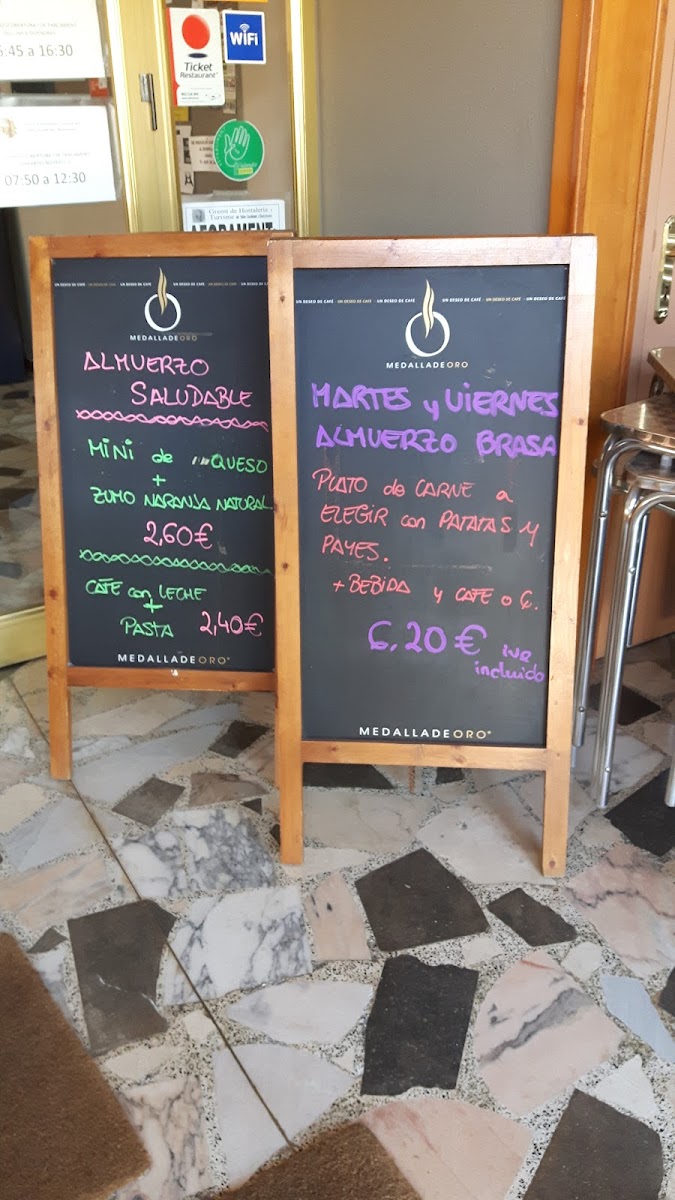 :45 a 16:30
07:50 a 12:30
Ticket
Restaurant
WiFi
Gremi de Hostaleria i
Turisme
AFORAMENT
UN DESEO DE CAFÉ · UN DESEO DE CAFÉ · UN DESEO DE CAFÉ · UN DESEO DE CAFÉ
MEDALLADEORO
ALMUERZO
SALUDABLE
MINI de QUESO
+
ZUMO NARANJA NATURAL
2,60€
CAFE con LECHE
+
PASTA 2,40€
MEDALLADEORO
UN DESEO DE CAFÉ · UN DESEO DE CAFÉ · UN DESEO DE CAFÉ · UN DESEO DE CAFÉ · UN DESEO DE CAFÉ
MEDALLADEORO
MARTES y VIERNES
ALMUERZO BRASA
PLATO de CARNE a
ELEGIR con PATATAS Y
PAYES.
+ BEBIDA y CAFE o C.
6,20€ iva
incluido
MEDALLADEORO